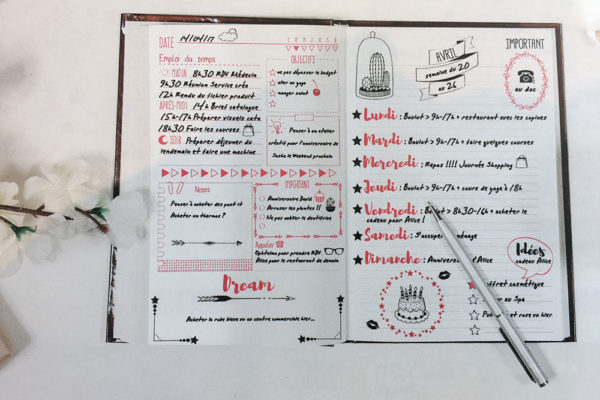 DATE
L M M J V S D
Emploi du temps
MATIN 8h30 RDV Médecin
9h30 Réunion Service créa
12h Rendu du fichier produit
APRÈS-MIDI 14h Brief catalogue
15h-17h Préparer visuels cata
18h30 Faire les courses
SOIR Préparer déjeuner du
lendemain et faire une machine
OBJECTIFS
ne pas dépasser le budget
aller au yoga
manger saint
Penser à un atelier
créatif pour l'anniversaire de
Sacha le Weekend prochain
Notes
Penser à acheter des post it
Acheter un thermos ?
IMPORTANT
Anniversaire David
Arroser les plantes !!
Ne pas oublier le dentifrice
Appeler
Ophtalmo pour prendre RDV
Alice pour le restaurant de demain
Dream
Acheter la robe bleue vu au centre commerciale hier...
AVRIL
semaine du 20
au 26
IMPORTANT
au doc
Lundi : Boulot > 9h-17h + restaurant avec les copines
Mardi : Boulot > 9h-17h + faire quelques courses
Mercredi : Repos !!!! Journée Shopping
Jeudi : Boulot > 9h-17h + cours de yoga à 18h
Vendredi : Boulot > 8h30-16h + acheter le
cadeau pour Alice !
Samedi : S'occuper ménage
Dimanche : Anniversaire d'Alice
Idées
cadeau Alice
Coffret cosmétique
au Spa
rose vu hier